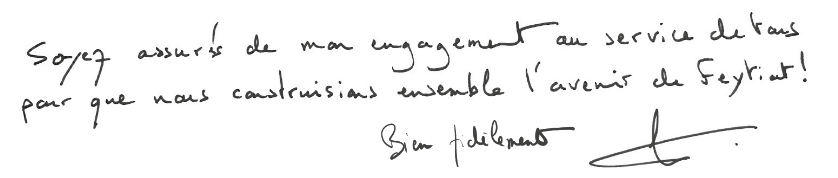 Soyez assurés de mon engagement au service de tous
pour que nous construisions ensemble l'avenir de Feytiat!
Bien fidèlement